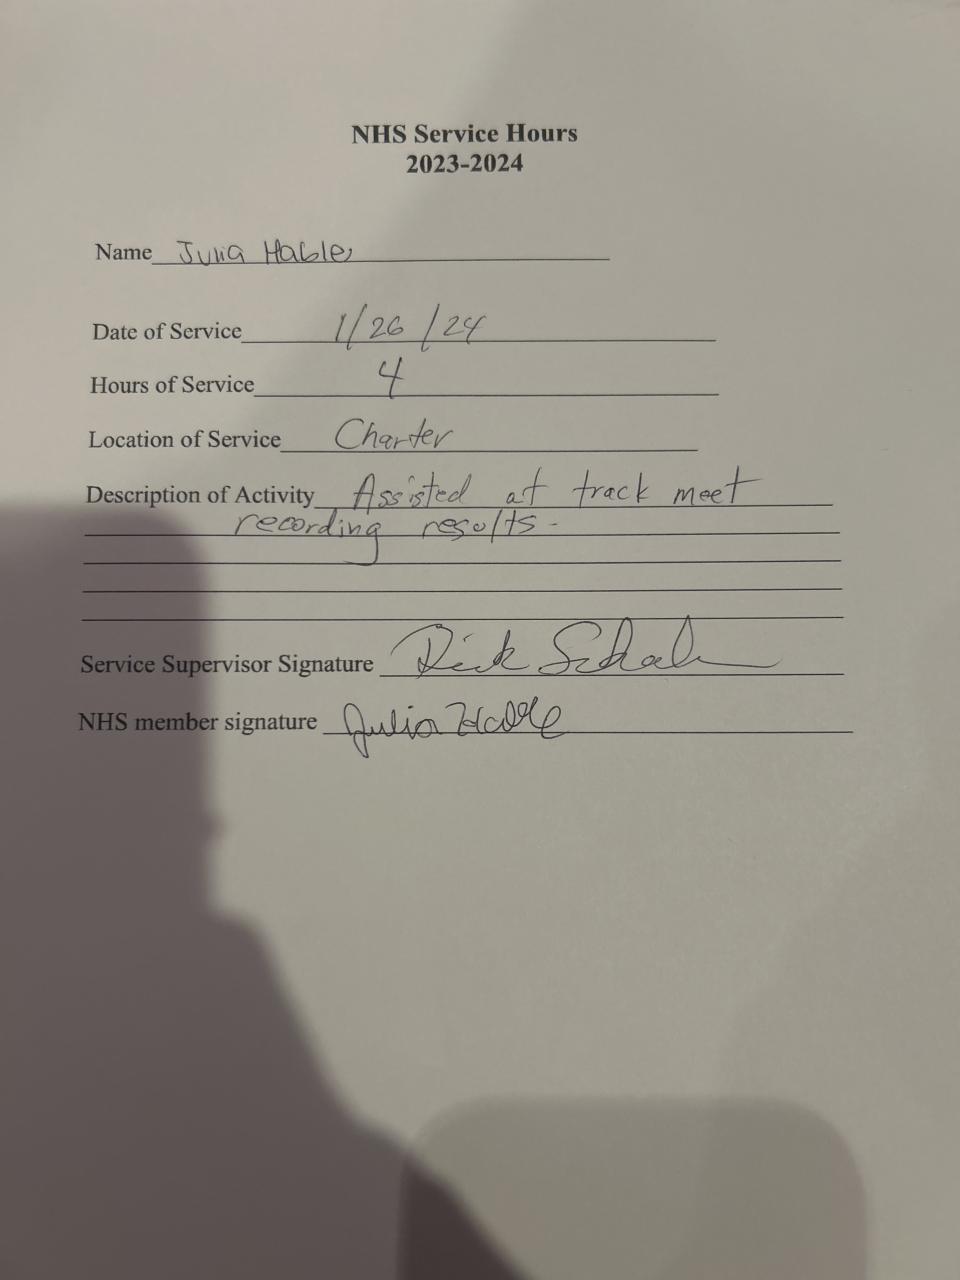 NHS Service Hours
2023-2024
Name Julia
Date of Service 1/26/24
Hours of Service 4
Location of Service Charter
Description of Activity Assisted at track meet
recording results.
Service Supervisor Signature Rick
NHS member signature Julia